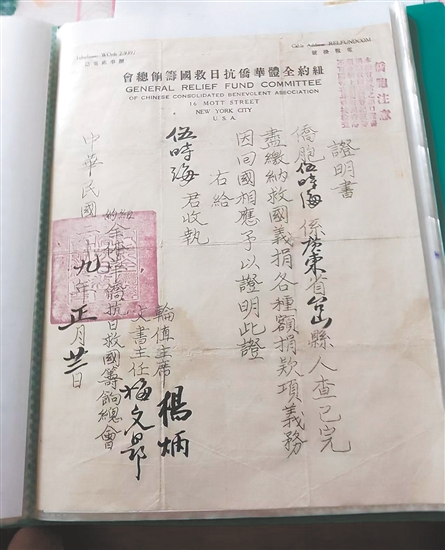 Cable Address: RELFUNDCOM
紐約全體華僑抗日救國籌餉總會
GENERAL RELIEF FUND COMMITTEE
OF CHINESE CONSOLIDATED BENEVOLENT ASSOCIATION
16 MOTT STREET
NEW YORK CITY
U. S. A.
僑胞注意
證明書
僑胞伍時海係廣東省台山縣人查已完
盡繳納救國義捐各種額捐款項義務
因回國相應予以證明此證
右給
伍時海君收執
輪值主席 楊炳
文書主任 梅文昂
紐約全体華僑抗日救國籌餉總會
中華民國 九年正月 日